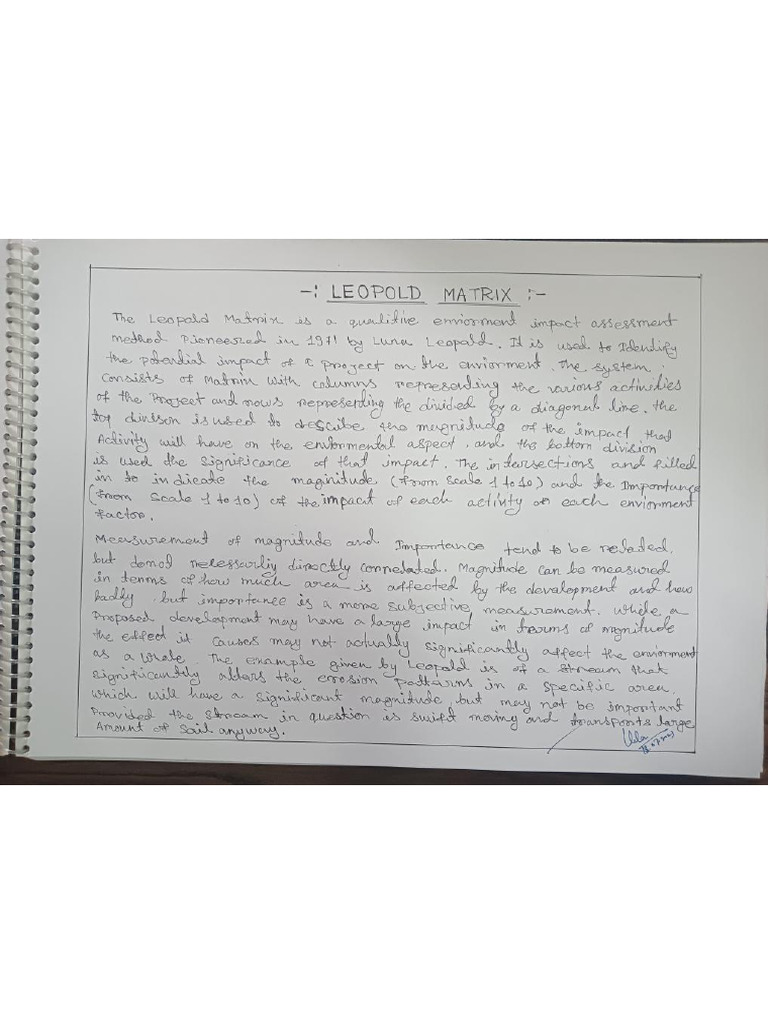 -: LEOPOLD MATRIX :-
The Leopold Matrix is a qualitive enviorment impact assessment
method Pioneered in 1971 by Luna Leopold. It is used to Identify
the potential impact of a project on the enviorment. The system
consists of Matrix with columns representing the various activities
of the Project and rows representing the divided by a diagonal line, the
top divison is used to describe the magnitude of the impact that
Activity will have on the enviormental aspect, and the bottom division
is used the significance of that impact. The intersections and filled
in to indicate the maginitude (from scale 1 to 10) and the Importance
(from scale 1 to 10) of the impact of each activity on each enviorment
factor.
Measurement of magnitude and Importance tend to be related,
but donot necessurliy directly connelated. Magnitude can be measured
in terms of how much area is affected by the development and how
badly, but importance is a more subjective measurement. while a
Proposed development may have a large impact in terms of magnitude
the effect it causes may not actually significantly affect the enviorment
as a whole. The example given by Leopold is of a stream that
significantly alters the errosion patterns in a specific area,
which will have a significant magnitude, but may not be important
Provided the stream in question is swift moving and transports large
Amount of soil anyway.